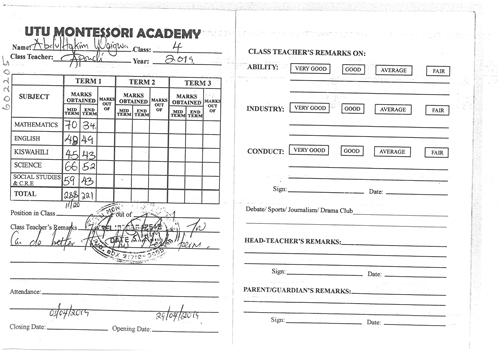 UTU MONTESSORI ACADEMY
Name: Abdulhakim Class: 4
Class Teacher: Year: 2019
602205
TERM 1 TERM 2 TERM 3
SUBJECT MARKS OBTAINED MARKS OUT OF MARKS OBTAINED MARKS OUT OF MARKS OBTAINED MARKS OUT OF
MID TERM END TERM MID TERM END TERM MID TERM END TERM
MATHEMATICS 70 34
ENGLISH 48 49
KISWAHILI 45 43
SCIENCE 66 52
SOCIAL STUDIES & C.R.E 59 43
TOTAL 288 221
11/20
Position in Class out of
Class Teacher's Remarks
Can do better term.
Attendance:
05/04/2019 29/04/2019
Closing Date: Opening Date:
CLASS TEACHER'S REMARKS ON:
ABILITY: VERY GOOD GOOD AVERAGE FAIR
INDUSTRY: VERY GOOD GOOD AVERAGE FAIR
CONDUCT: VERY GOOD GOOD AVERAGE FAIR
Sign: Date:
Debate/ Sports/ Journalism/ Drama Club
HEAD-TEACHER'S REMARKS:
Sign: Date:
PARENT/GUARDIAN'S REMARKS:
Sign: Date: